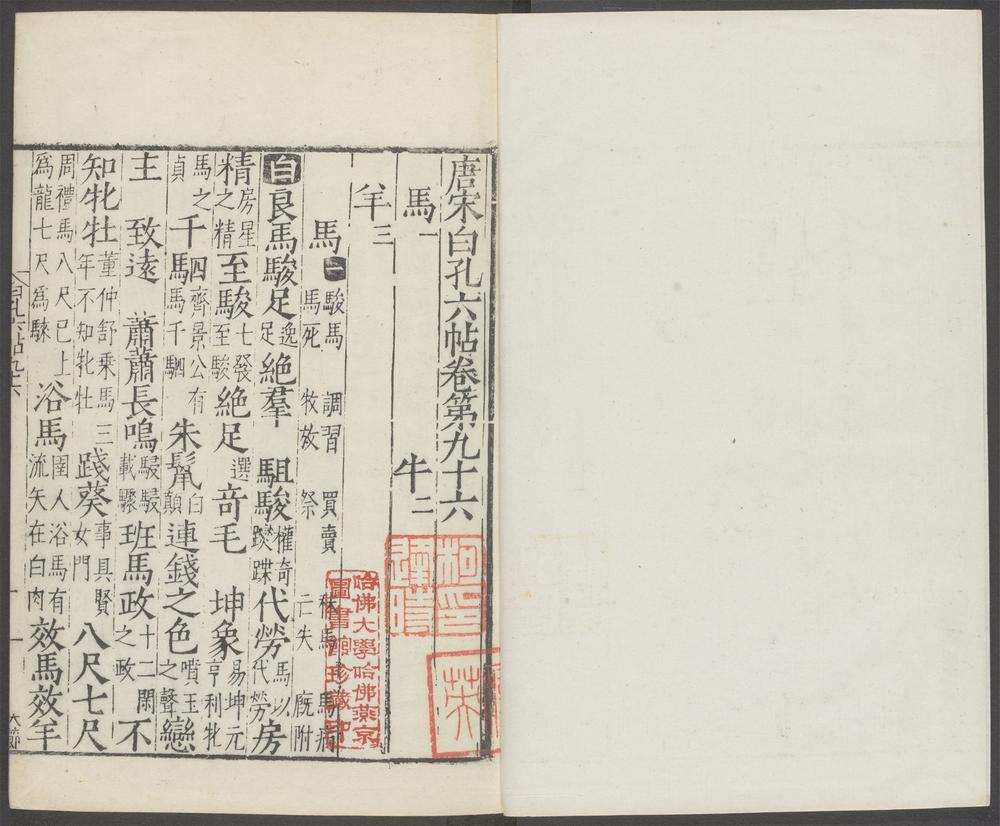 唐宋白孔六帖卷第九十六
馬一 牛二
羊三
馬一 駿馬 調習 買賣 秣馬 馬病 馬死 牧放 祭 亡失 廐附
白 良馬駿足 逸足 絶羣 駔駿 權奇蹀 代勞 馬以代勞 房
精 房星之精 至駿 七發至駿 絶足 選 奇毛 坤象 易坤元亨利牝
馬之貞 千駟 齊景公有馬千駟 朱鬣 白顛 連錢之色 噴玉之聲 戀
主 致遠 蕭蕭長鳴 駸駸載驟 班馬政 十二閑之政 不
知牝牡 董仲舒乘馬三年不知牝牡 踐葵 事具賢女門 八尺七尺
周禮馬八尺已上爲龍七尺爲騋 浴馬 圉人浴馬有流矢在白肉 效馬效羊
哈佛大學哈佛燕京圖書館珍藏印